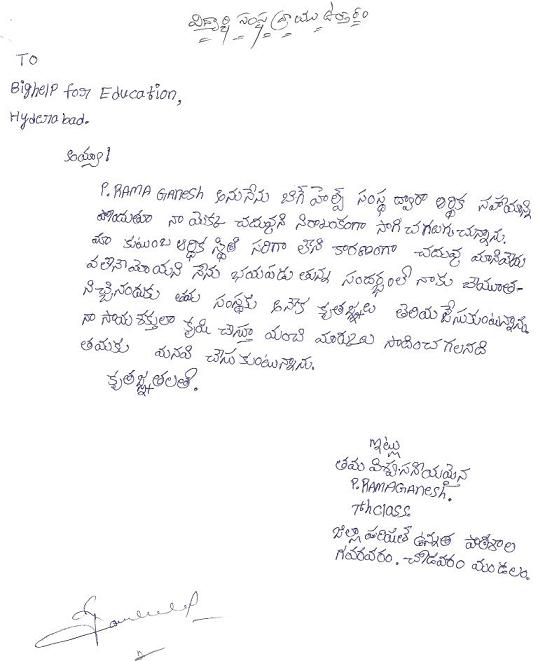 విద్యార్థి సంస్థకు వ్రాయు ఉత్తరం
TO
Bighelp for Education,
Hyderabad.
అయ్యా!
P.RAMA GANesh అను నేను బిగ్ హెల్ప్ సంస్థ ద్వారా ఆర్థిక సహాయాన్ని
పొందుతూ నా యొక్క చదువుని నిరాటంకంగా సాగించగలుగుచున్నాను.
మా కుటుంబ ఆర్థిక స్థితి సరిగా లేని కారణంగా చదువు మానివేయ
వలసివస్తుందేమోయని నేను భయపడుతున్న సందర్భంలో నాకు చేయూత-
నిచ్చినందుకు తమ సంస్థకు అనేక కృతజ్ఞతలు తెలియజేసుకుంటున్నాను.
నా సాయశక్తులా కృషి చేస్తూ మంచి మార్కులు సాదించగలనని
తమకు మనవి చేసుకుంటున్నాను.
కృతజ్ఞతలతో.
ఇట్లు
తమ విశ్వసనీయమైన
P.RAMAGANesh.
7th class
జిల్లా పరిషత్ ఉన్నత పాఠశాల
గవరవరం. చోడవరం మండలం.